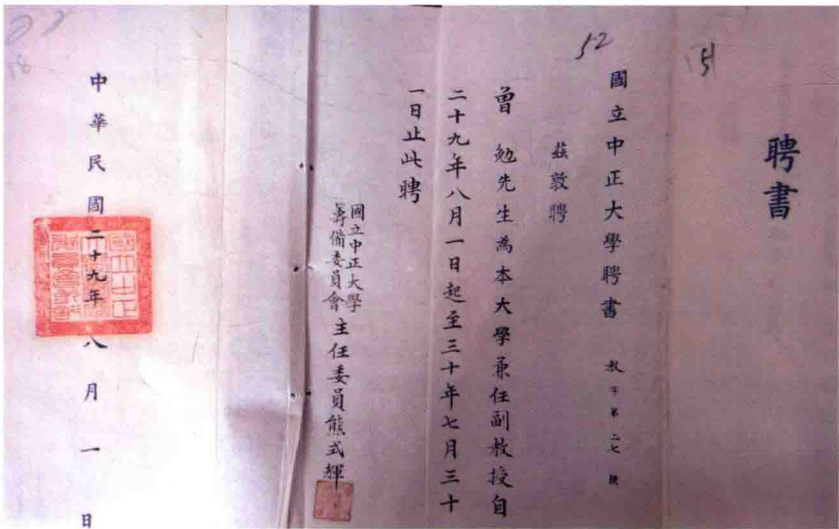 聘書
51
52
國立中正大學聘書 教字第二七號
茲敦聘
曾勉先生為本大學兼任副教授自
二十九年八月一日起至三十年七月三十
一日止此聘
國立中正大學
籌備委員會主任委員熊式輝
中華民國二十九年八月一日